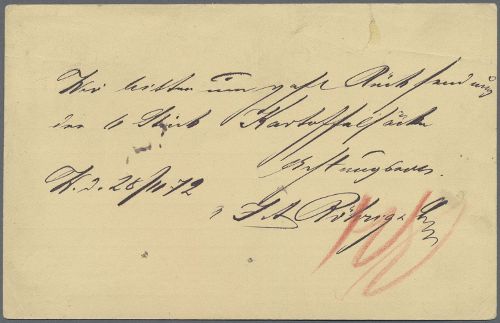 Wir bitten um gefl Rücksendung
der 6 Stück Kartoffelsäcke
Achtungsvoll
W. d. 28/10 72
Röhrig